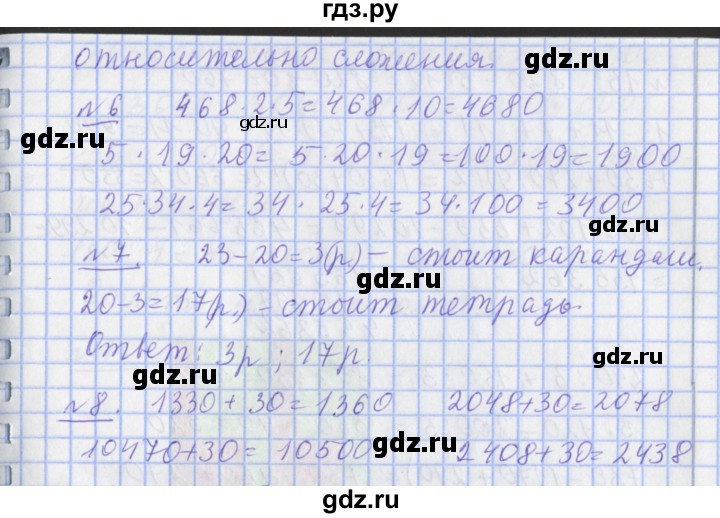 гдз.ру
относительно сложения. gdz.ru
№6 468·2·5=468·10=4680
gdz.ru
gdz.ru
5·19·20=5·20·19=100·19=1900
25·34·4=34·25·4=34·100=3400
№7. 23-20=3(р.)- стоит карандаш.
gdz.ru
20-3=17(р.)-стоит тетрадь.
Ответ: 3р; 17р.
gdz.ru
gdz.ru
№8. 1330+30=1360 2048+30=2078
10470+30=10500 gdz.ru 2408+30=2438
gdz.ru